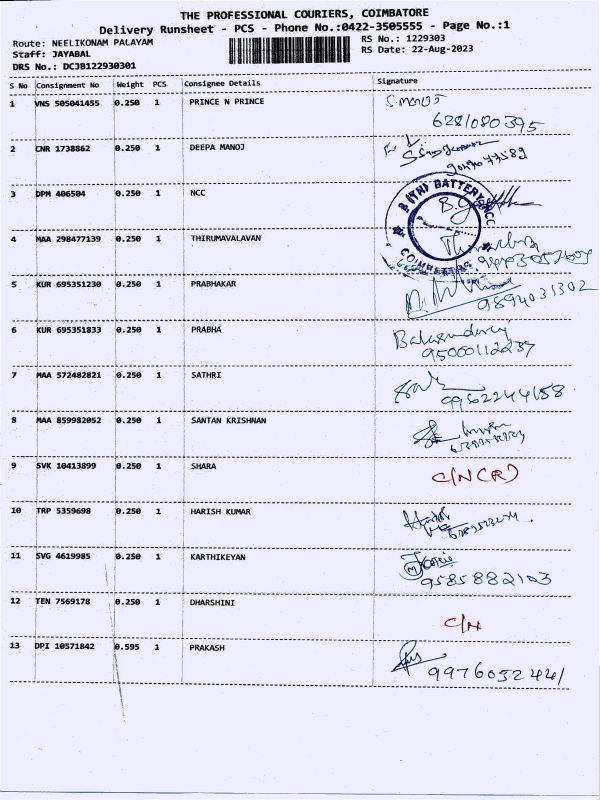 THE PROFESSIONAL COURIERS, COIMBATORE
Delivery Runsheet - PCS - Phone No.:0422-3505555 - Page No.:1
Route: NEELIKONAM PALAYAM RS No.: 1229303
Staff: JAYABAL RS Date: 22-Aug-2023
DRS No.: DCJB122930301
S No Consignment No Weight PCS Consignee Details Signature
1 VNS 505041455 0.250 1 PRINCE N PRINCE S.manoj
6281080395
2 CNR 1738862 0.250 1 DEEPA MANOJ
3 DPM 406504 0.250 1 NCC
(TN) BATTERY NCC
COIMBATORE
4 MAA 298477139 0.250 1 THIRUMAVALAVAN
5 KUR 695351230 0.250 1 PRABHAKAR
9894031302
6 KUR 695351833 0.250 1 PRABHA
7 MAA 572482821 0.250 1 SATHRI
9962244158
8 MAA 859982052 0.250 1 SANTAN KRISHNAN
9 SVK 10413899 0.250 1 SHARA C/N(CR)
10 TRP 5359698 0.250 1 HARISH KUMAR
11 SVG 4619985 0.250 1 KARTHIKEYAN
9585882103
12 TEN 7569178 0.250 1 DHARSHINI C/N
13 DPI 10571842 0.595 1 PRAKASH
9976052441